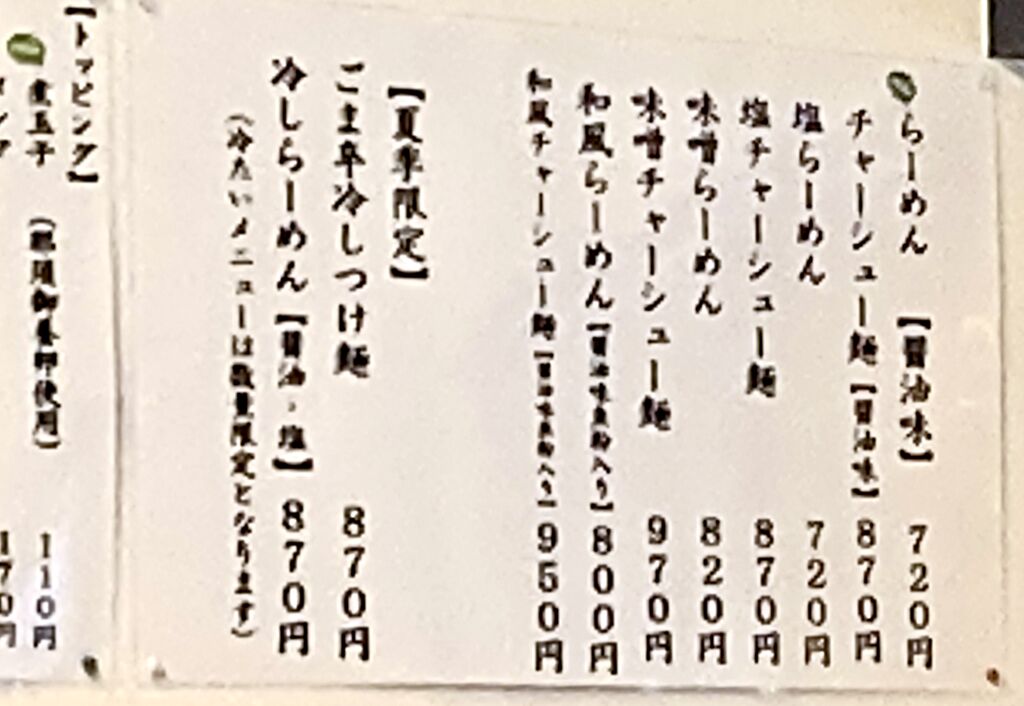 らーめん 【醤油味】 720円
チャーシュー麺【醤油味】 870円
塩らーめん 720円
塩チャーシュー麺 870円
味噌らーめん 820円
味噌チャーシュー麺 970円
和風らーめん【醤油味魚粉入り】 800円
和風チャーシュー麺【醤油味魚粉入り】 950円
【夏季限定】
ごま辛冷しつけ麺 870円
冷しらーめん【醤油・塩】 870円
(冷たいメニューは数量限定となります)
【トッピング】
煮玉子 使用) 110円
170円